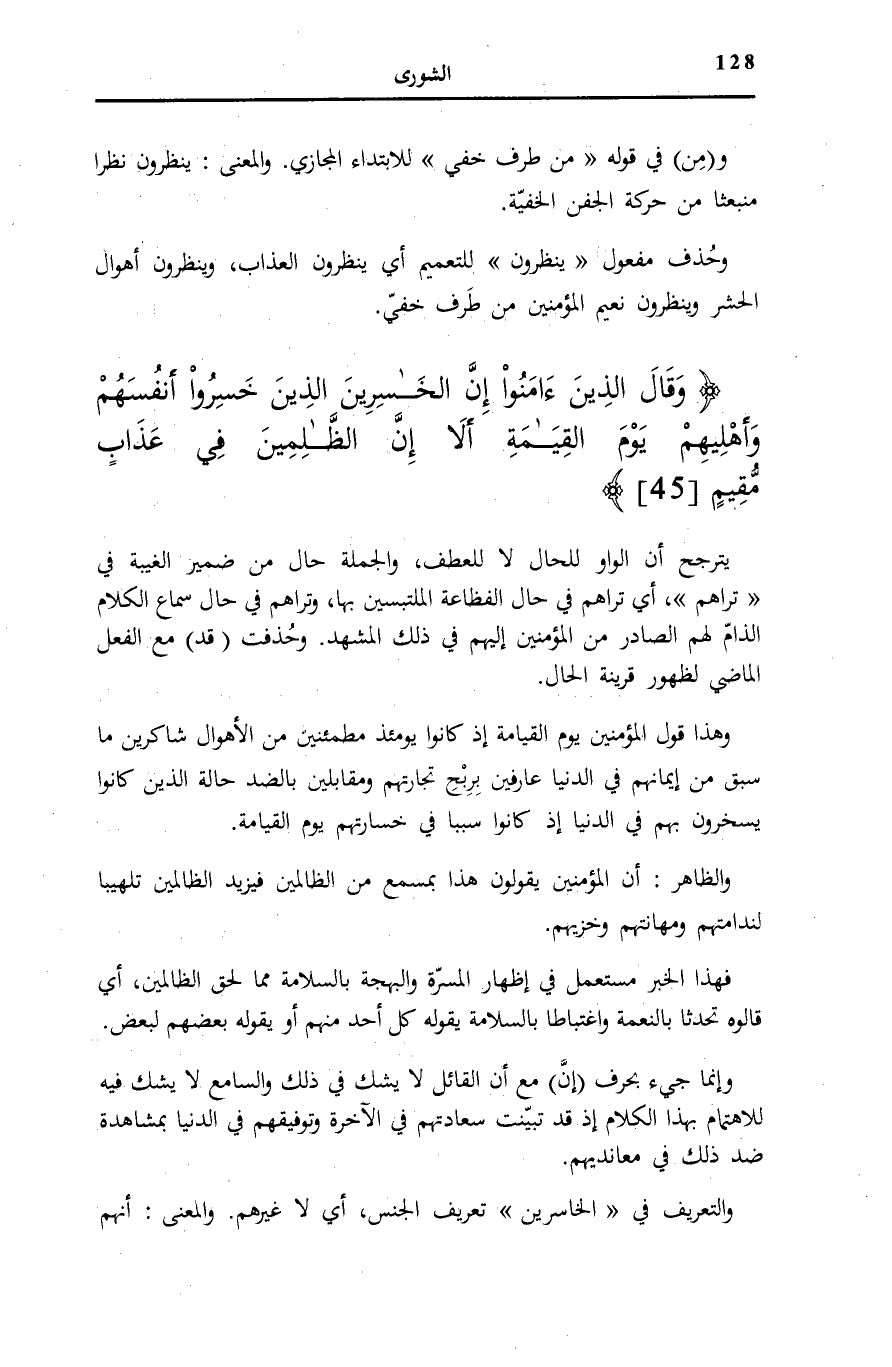 128
الشورى
و(مِن) في قوله « من طرف خفي » للابتداء المجازي. والمعنى : ينظرون نظرا
منبعثا من حركة الجفن الخفيّة.
وحُذف مفعول « ينظرون » للتعميم أي ينظرون العذاب، وينظرون أهوال
الحشر وينظرون نعيم المؤمنين من طَرف خفيّ.
﴿ وَقَالَ الذِينَ ءَامَنُواْ إِنَّ الخَـٰسِرِينَ الذِينَ خَسِرُواْ أَنفُسَهُمْ
وَأَهْلِيهِمْ يَوْمَ القِيَـٰمَةِ أَلَا إِنَّ الظَّـٰلِمِينَ فِي عَذَابٍ
مُّقِيمٍ [45] ﴾
يترجح أن الواو للحال لا للعطف، والجملة حال من ضمير الغيبة في
« تراهم »، أي تراهم في حال الفظاعة الملتبسين بها، وتراهم في حال سماع الكلام
الذامّ لهم الصادر من المؤمنين إليهم في ذلك المشهد. وحُذفت ( قد) مع الفعل
الماضي لظهور قرينة الحال.
وهذا قول المؤمنين يوم القيامة إذ كانوا يومئذ مطمئنين من الأهوال شاكرين ما
سبق من إيمانهم في الدنيا عارفين بِرِبْحِ تجارتهم ومقابلين بالضد حالة الذين كانوا
يسخرون بهم في الدنيا إذ كانوا سببا في خسارتهم يوم القيامة.
والظاهر : أن المؤمنين يقولون هذا بمسمع من الظالمين فيزيد الظالمين تلهيبا
لندامتهم ومهانتهم وخزيهم.
فهذا الخبر مستعمل في إظهار المسرّة والبهجة بالسلامة مما لحق الظالمين، أي
قالوه تحدثا بالنعمة واغتباطا بالسلامة يقوله كل أحد منهم أو يقوله بعضهم لبعض.
وإنما جيء بحرف (إنَّ) مع أن القائل لا يشك في ذلك والسامع لا يشك فيه
للاهتمام بهذا الكلام إذ قد تبيّنت سعادتهم في الآخرة وتوفيقهم في الدنيا بمشاهدة
ضد ذلك في معانديهم.
والتعريف في « الخاسرين » تعريف الجنس، أي لا غيرهم. والمعنى : أنهم